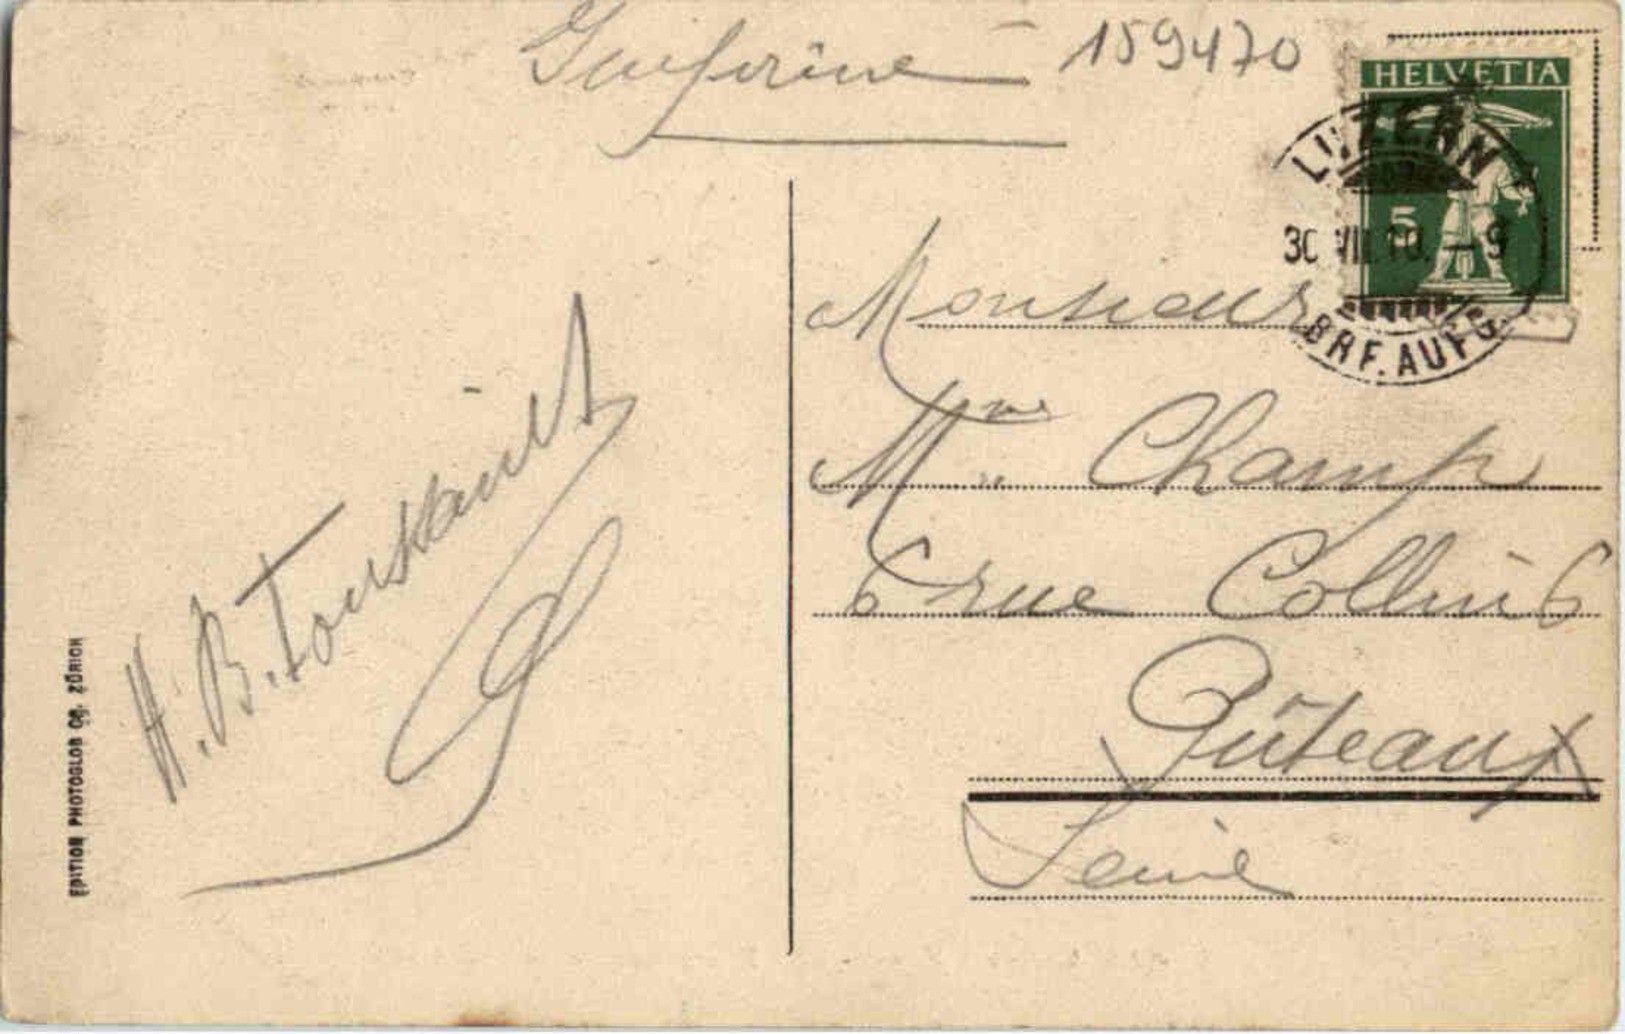 159470
HELVETIA
LUZERN
5
30 VII 10. – 9
BRF. AUFG.
Monsieur
Mme Champ
6 rue Collin 6
Pûteaux
Seine
H. B.
EDITION PHOTOGLOB Co. ZÜRICH